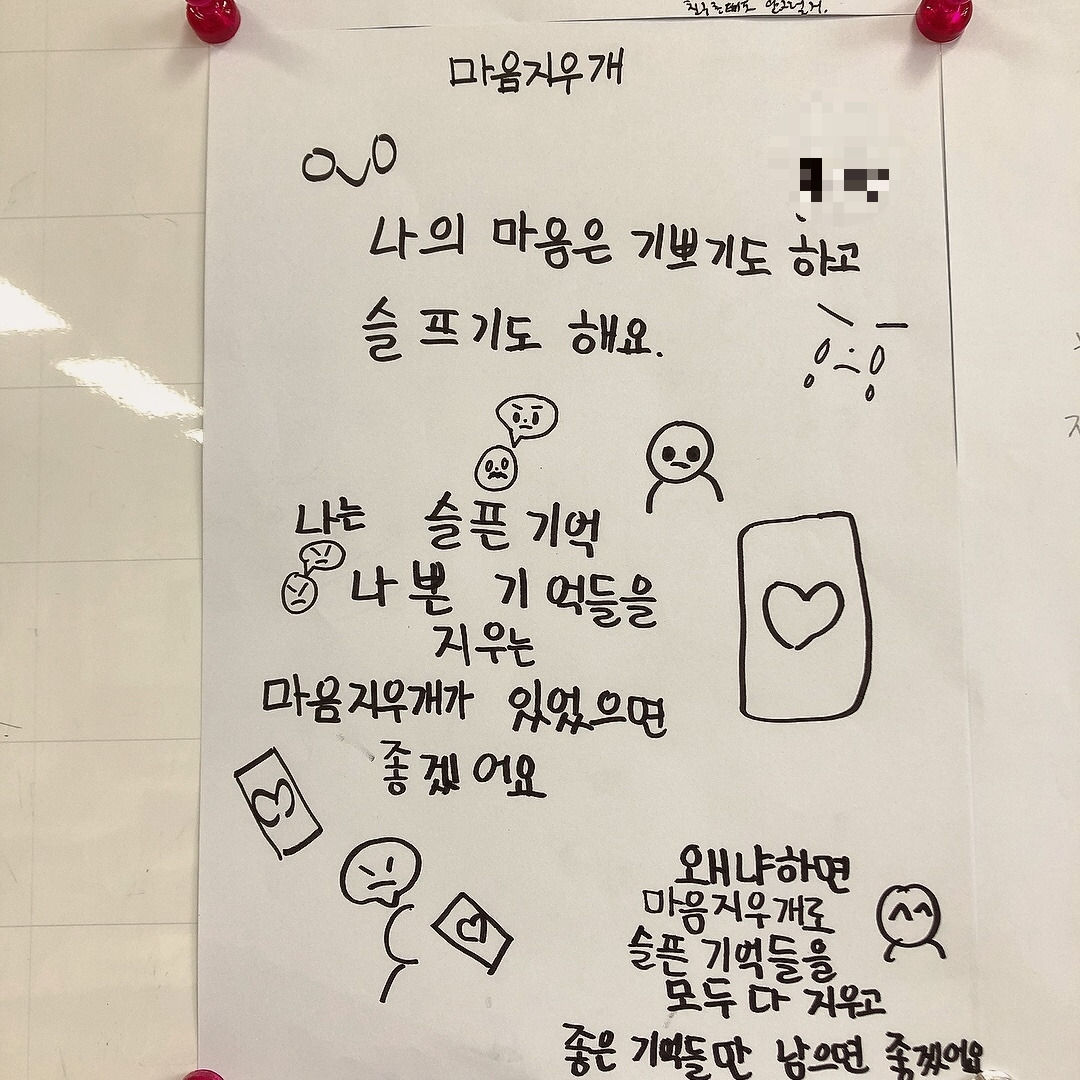 마음지우개
나의 마음은 기쁘기도 하고
슬프기도 해요.
나는 슬픈 기억
나쁜 기억들을
지우는
마음지우개가 있었으면
좋겠어요
왜냐하면
마음지우개로
슬픈 기억들을
모두 다 지우고
좋은 기억들만 남으면 좋겠어요